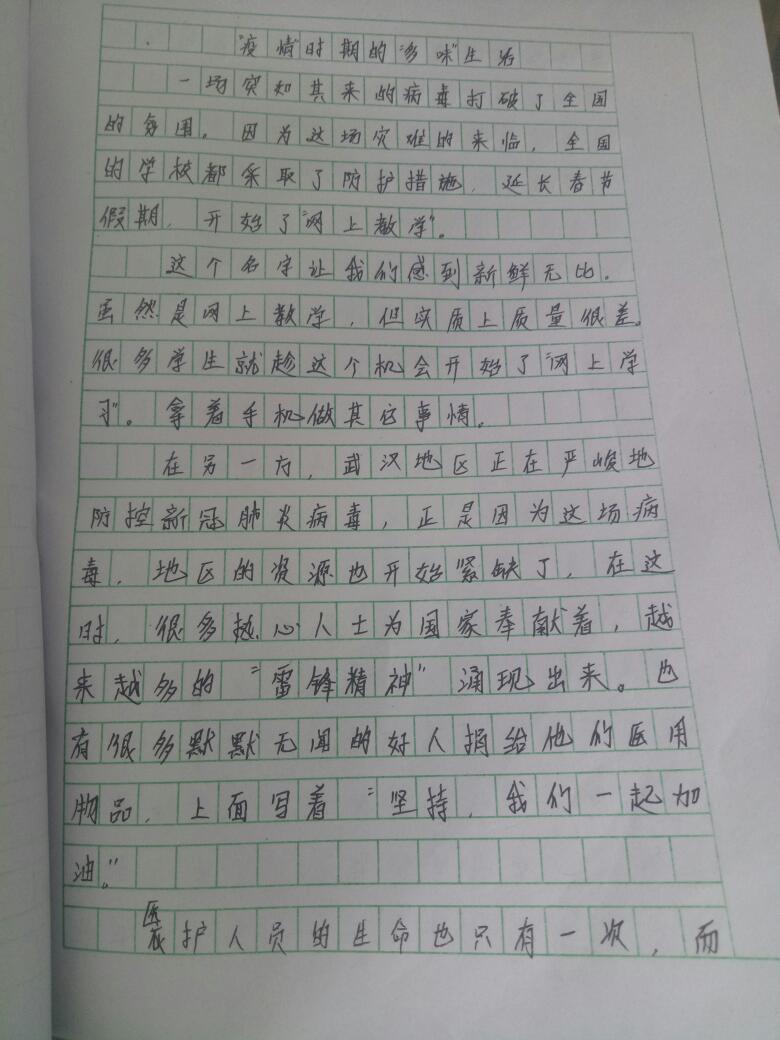 "疫情"时期的"多味"生活
一场突如其来的病毒打破了全国
的氛围。因为这场灾难的来临，全国
的学校都采取了防护措施，延长春节
假期，开始了"网上教学"。
这个名字让我们感到新鲜无比。
虽然是网上教学，但实质上质量很差。
很多学生就趁这个机会开始了"网上学
习"。拿着手机做其它事情。
在另一方，武汉地区正在严峻地
防控新冠肺炎病毒，正是因为这场病
毒，地区的资源也开始紧缺了，在这
时，很多热心人士为国家奉献着，越
来越多的"雷锋精神"涌现出来。也
有很多默默无闻的好人捐给他们医用
物品，上面写着"坚持，我们一起加
油。"
医护人员的生命也只有一次，而